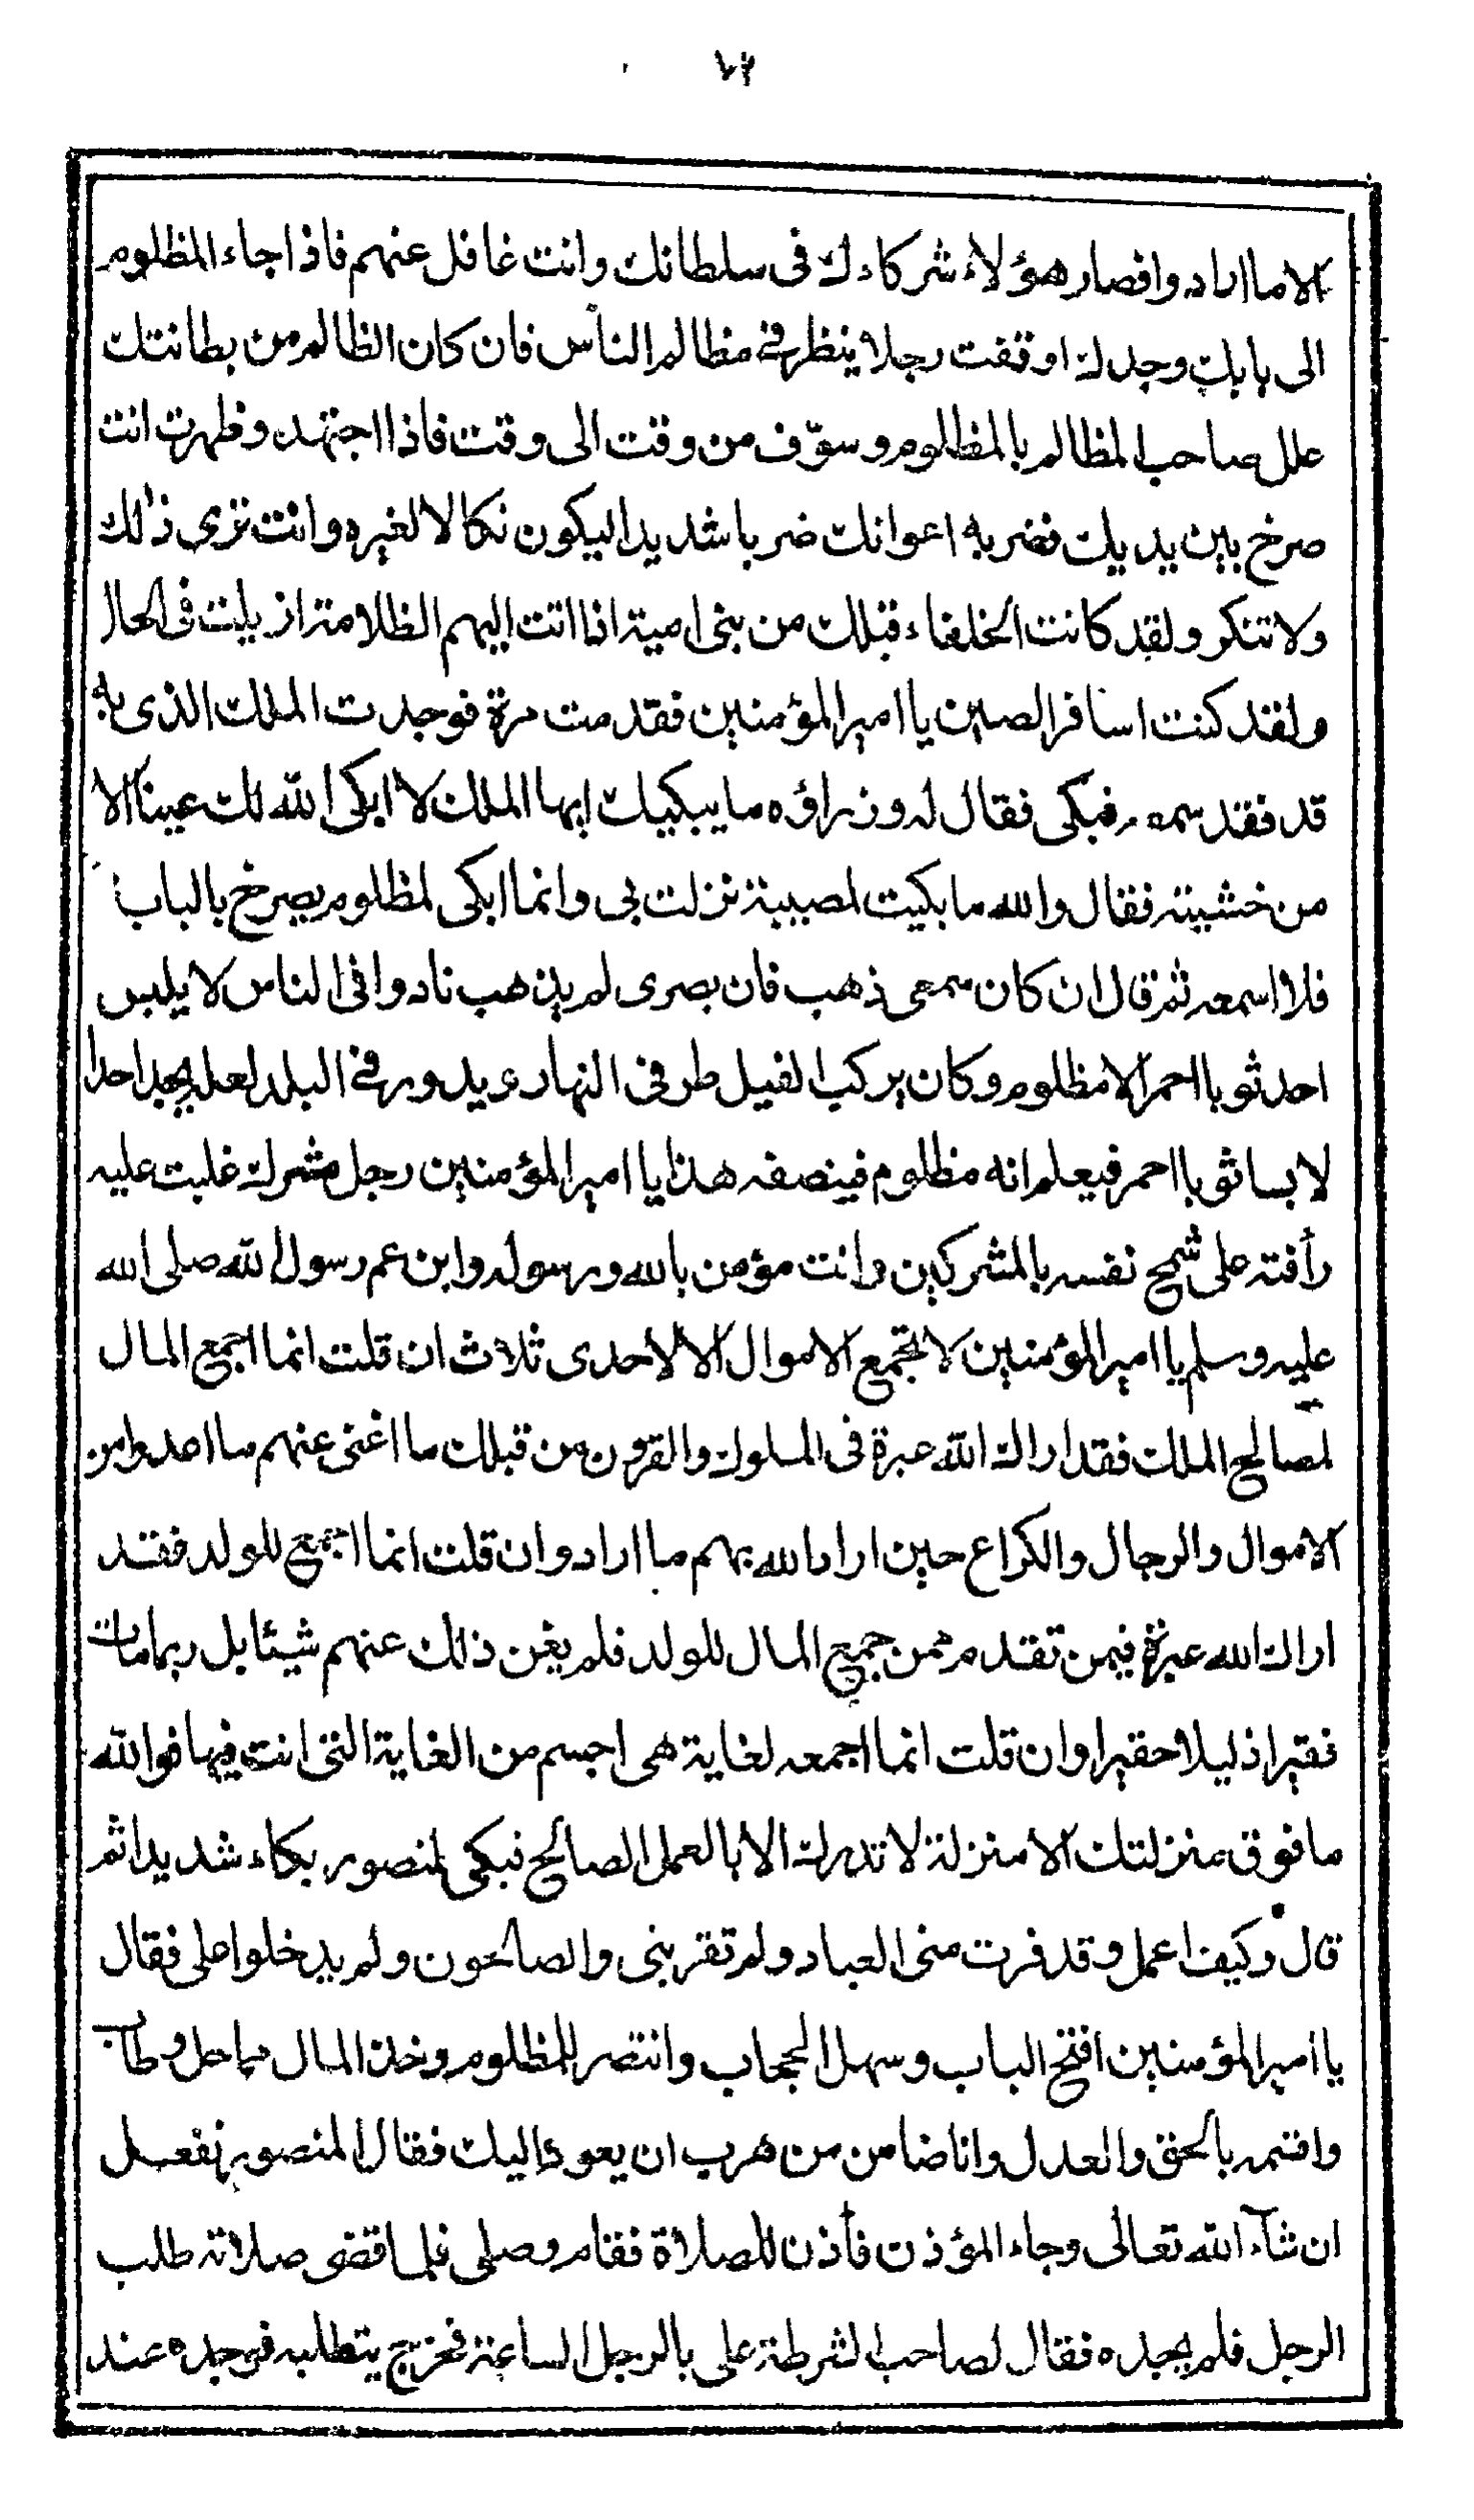 الا ما ارادوا فصار هؤلاء شركاءك فى سلطانك وانت غافل عنهم فاذا جاء المظلوم
الى بابك وجدك اوقفت رجلا ينظر فى مظالم الناس فان كان الظالم من بطانتك
علل صاحب المظالم بالمظلوم وسوّف من وقت الى وقت فاذا اجتهد وظهرت انت
صرخ بين يديك فضربه اعوانك ضربا شديدا ليكون نكالا لغيره وانت ترى ذلك
ولا تنكر ولقد كانت الخلفاء قبلك من بنى امية اذا اتت اليهم الظلامة ازيلت فى الحال
ولقد كنت اسافر الصين يا امير المؤمنين فقدمت مرة فوجدت الملك الذى به
قد فقد سمعه فبكى فقال له وزراؤه ما يبكيك ايها الملك لا ابكى الله لك عينا الا
من خشيته فقال والله ما بكيت لمصيبة نزلت بى وانما ابكى لمظلوم يصرخ بالباب
فلا اسمعه ثم قال ان كان سمعى ذهب فان بصرى لم يذهب نادوا فى الناس لا يلبس
احد ثوبا احمر الا مظلوم وكان يركب الفيل طرفى النهار ويدور فى البلد لعله يجد احدا
لابسا ثوبا احمر فيعلم انه مظلوم فينصفه هذا يا امير المؤمنين رجل مشرك غلبت عليه
رأفته على شح نفسه بالمشركين وانت مؤمن بالله ورسوله وابن عم رسول الله صلى الله
عليه وسلم يا امير المؤمنين لا تجمع الاموال الا لاحدى ثلاث ان قلت انما اجمع المال
لمصالح الملك فقد اراك الله عبرة فى الملوك والقرون من قبلك ما اغنى عنهم ما اعدوا من
الاموال والرجال والكراع حين اراد الله بهم ما اراد وان قلت انما اجمع للولد فقد
اراك الله عبرة فيمن تقدم ممن جمع المال للولد فلم يغن ذلك عنهم شيئا بل ربما مات
فقيرا ذليلا حقيرا وان قلت انما اجمعه لغاية هى اجسم من الغاية التى انت فيها فوالله
ما فوق منزلتك الا منزلة لا تدرك الا بالعمل الصالح فبكى المنصور بكاء شديدا ثم
قال وكيف اعمل وقد فرت منى العباد ولم تقربنى والصالحون ولم يدخلوا على فقال
يا امير المؤمنين افتح الباب وسهل الحجاب وانتصر للمظلوم وخذ المال مما حل وطاب
واقسمه بالحق والعدل وانا ضامن من هرب ان يعود اليك فقال المنصور نفعل
ان شآء الله تعالى وجاء المؤذن فأذن للصلاة فقام وصلى فلما قضى صلاته طلب
الرجل فلم يجده فقال لصاحب الشرطة على بالرجل الساعة فخرج يتطلبه فوجده عند